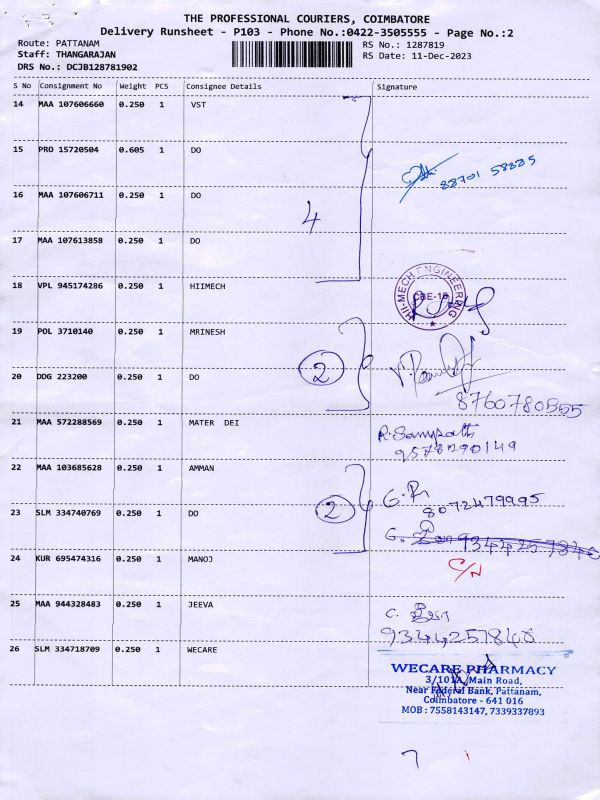 THE PROFESSIONAL COURIERS, COIMBATORE
Delivery Runsheet - P103 - Phone No.:0422-3505555 - Page No.:2
Route: PATTANAM
RS No.: 1287819
Staff: THANGARAJAN
RS Date: 11-Dec-2023
DRS No.: DCJB128781902
S No Consignment No Weight PCS Consignee Details Signature
14 MAA 107606660 0.250 1 VST
15 PRO 15720504 0.605 1 DO
88701 58885
16 MAA 107606711 0.250 1 DO
4
17 MAA 107613858 0.250 1 DO
18 VPL 945174286 0.250 1 HIIMECH
HII-MECH ENGINEERING
CBE-16
19 POL 3710140 0.250 1 MRINESH
20 DDG 223200 0.250 1 DO
2
8760780555
21 MAA 572288569 0.250 1 MATER DEI
R. Sampath
9578290149
22 MAA 103685628 0.250 1 AMMAN
8072479995
23 SLM 334740769 0.250 1 DO
2
G.
24 KUR 695474316 0.250 1 MANOJ
C/N
25 MAA 944328483 0.250 1 JEEVA
C. ஜீவா
9344257848
26 SLM 334718709 0.250 1 WECARE
WECARE PHARMACY
3/101A, Main Road,
Near Federal Bank, Pattanam,
Coimbatore - 641 016
MOB : 7558143147, 7339337893
7